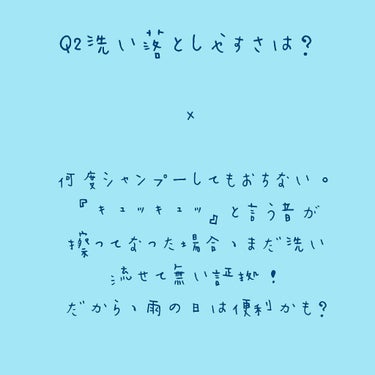 Q2洗い落としやすさは?
×
何度シャンプーしてもおちない。
『キュッキュッ』と言う音が
擦ってなった場合、まだ洗い
流せて無い証拠!
だから、雨の日は便利かも?